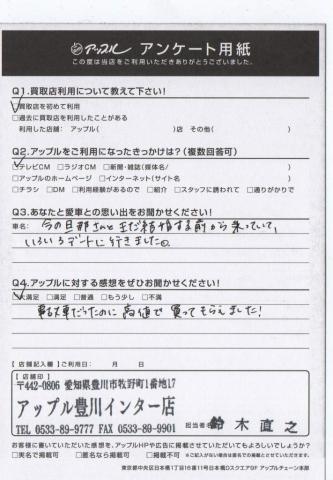 アップル アンケート用紙
この度は当店をご利用いただきありがとうございました。
Q1.買取店利用について教えて下さい!
□買取店を初めて利用
□過去に買取店を利用したことがある
利用した店舗: アップル( )店 その他( )
Q2.アップルをご利用になったきっかけは?(複数回答可)
□テレビCM □ラジオCM □新聞・雑誌(媒体名/ )
□アップルのホームページ □インターネット(サイト名 )
□チラシ □DM □利用経験があるので □紹介 □スタッフに誘われて □通りがかりで
Q3.あなたと愛車との思い出をお聞かせください!
車名: 今の旦那さんとまだ結婚する前から乗っていて、
いろいろデートに行きました。
Q4.アップルに対する感想をぜひお聞かせください!
□大満足 □満足 □普通 □もう少し □不満
軽自動車だったのに高値で買ってもらえました!
【店舗記入欄】ご利用日: 月 日
【店舗印】
〒442-0806 愛知県豊川市牧野町1番地17
アップル豊川インター店
TEL 0533-89-9777 FAX 0533-89-9901
担当者名 鈴木直之
お客様に書いていただいた感想を、アップルHPや広告に掲載させていただいてもよろしいでしょうか?
□実名で掲載可 □匿名なら掲載可 □掲載不可 ※ご記入がない場合は匿名での掲載とさせていただきます。
東京都中央区日本橋1丁目16番11号日本橋Dスクエア6F アップルチェーン本部